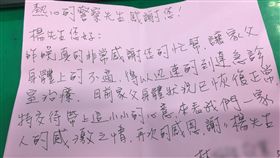 熱心的警察先生感謝您!
楊先生您好:
昨晚真的非常感謝您的忙幫,讓家父
身體上的不適,得以迅速的到達急診
室治療,目前家父身體狀況已恢復正常
特交待帶上這小小的心意,來表我們一家
人的感激之情,再次的感恩謝謝楊先生